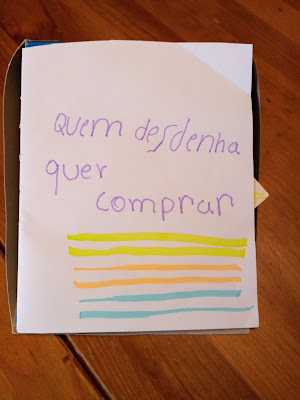 Quem desdenha
quer
comprar